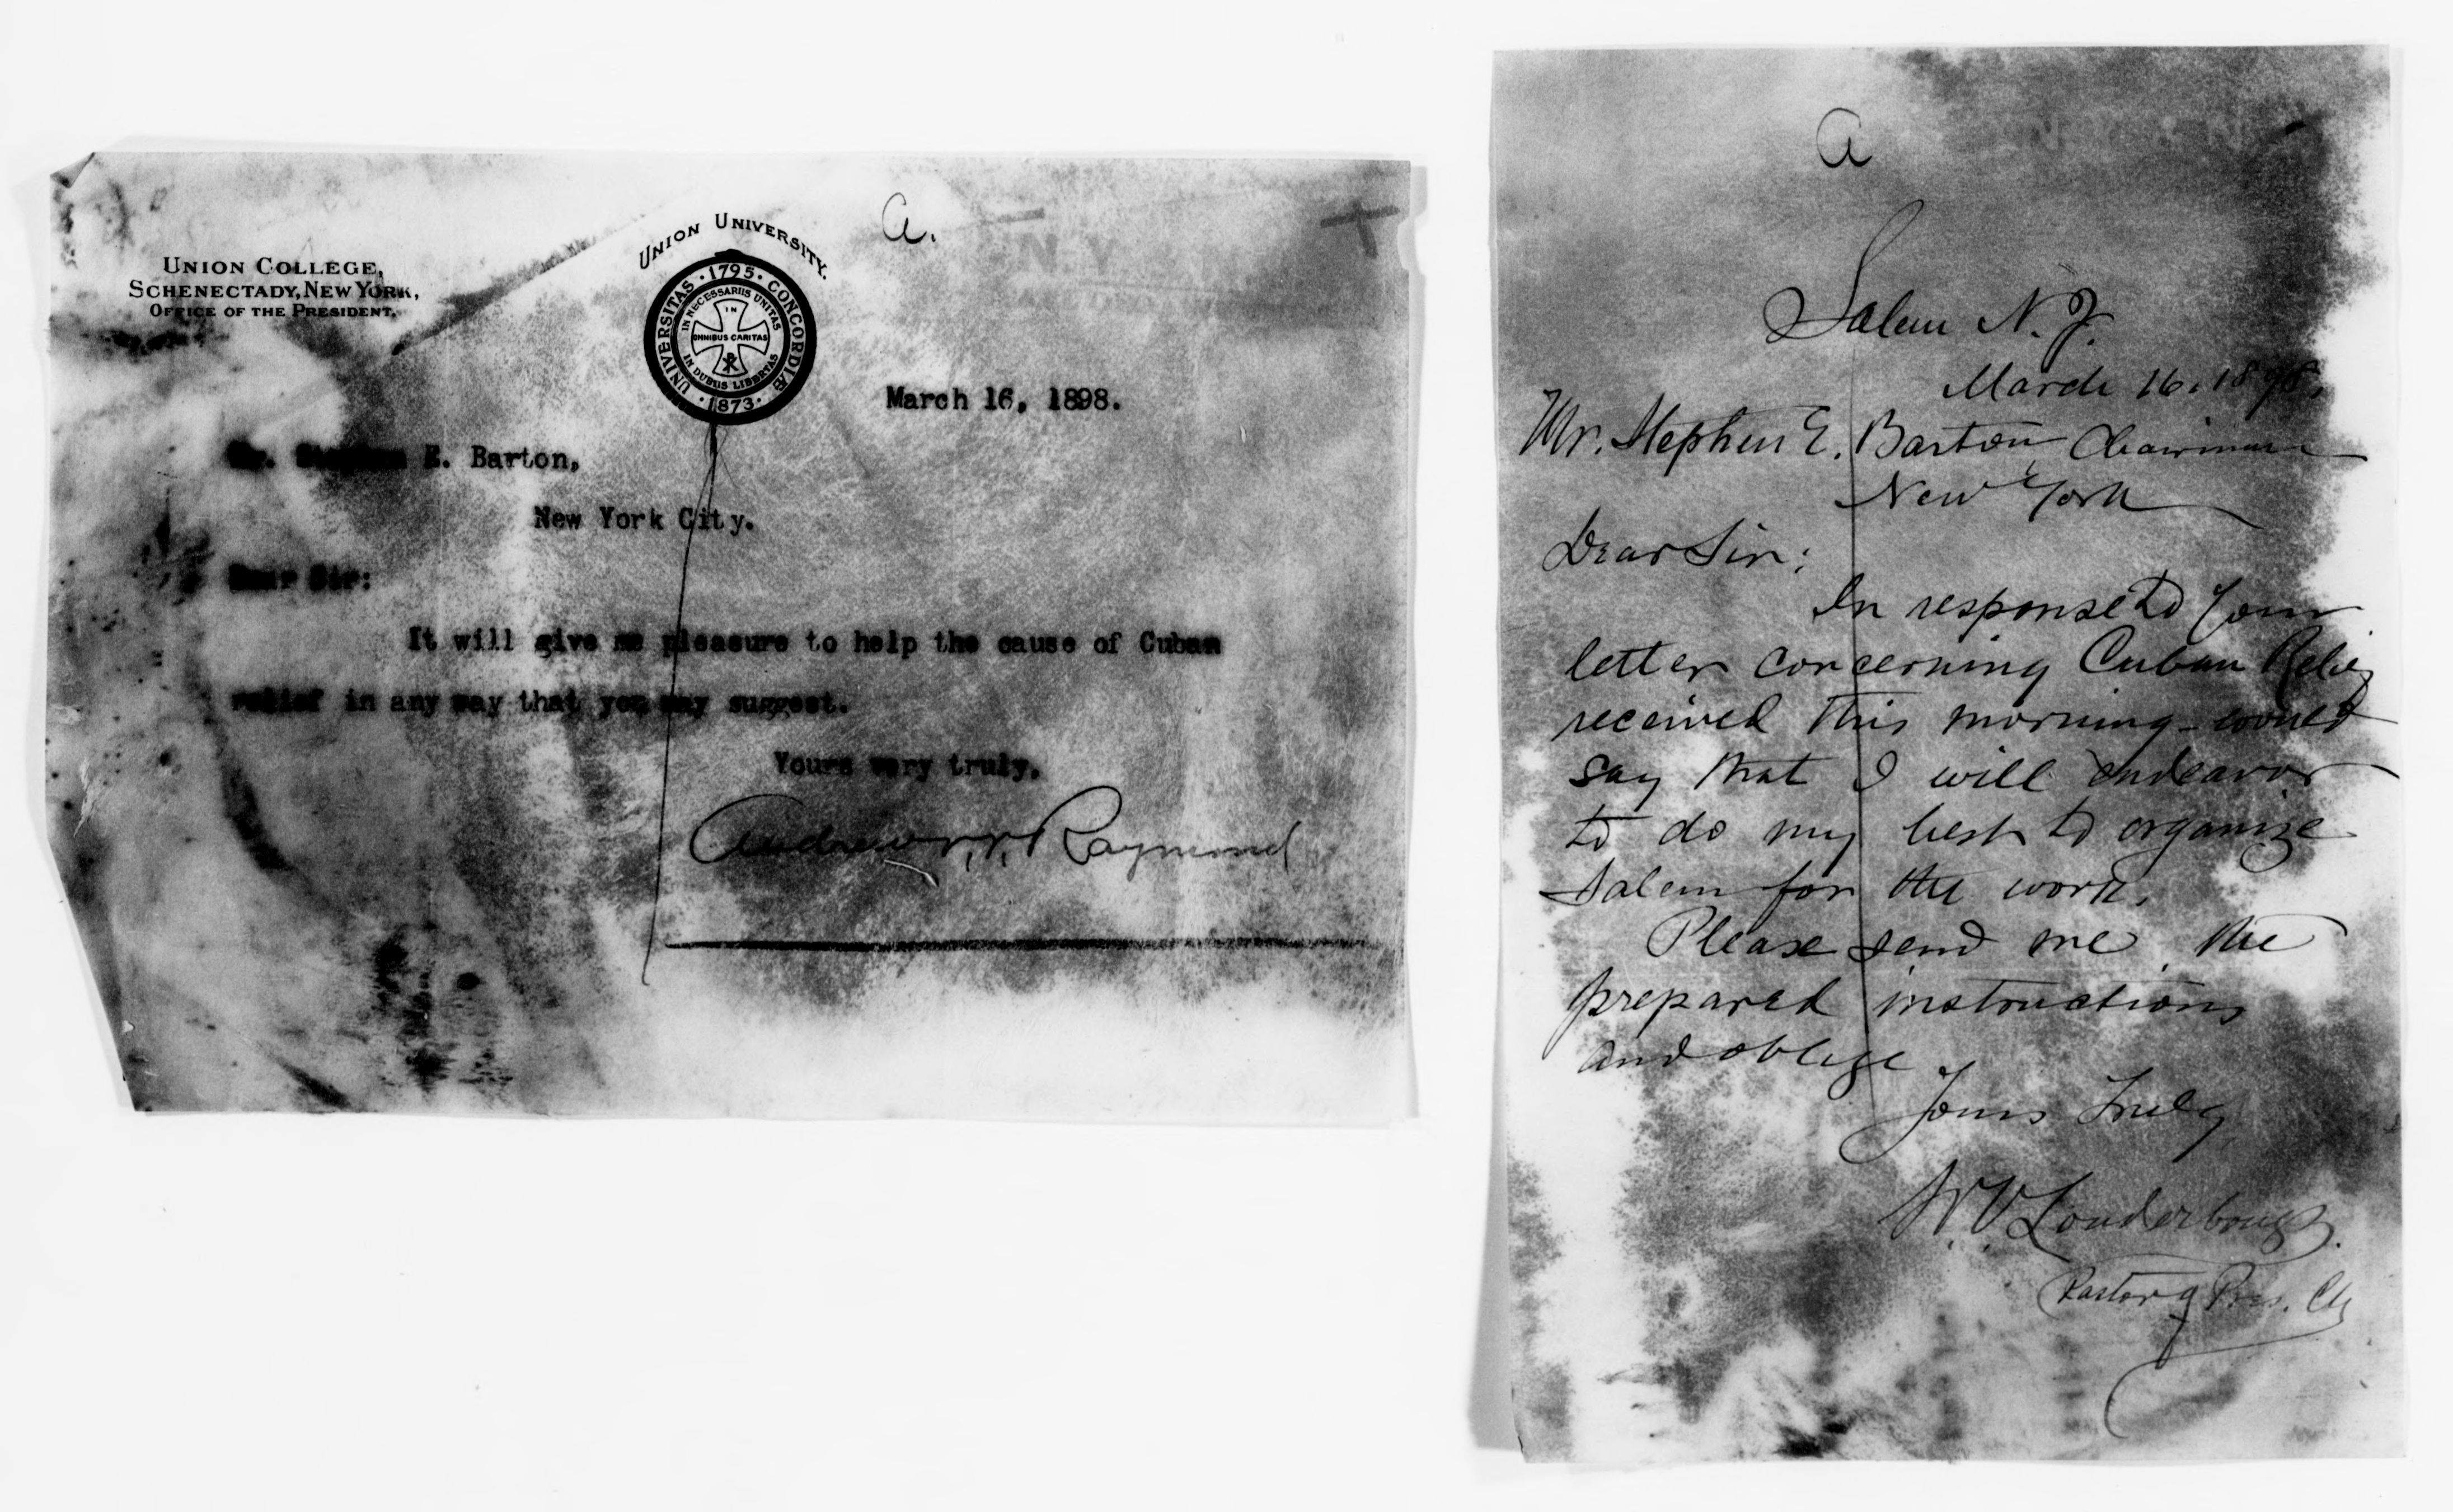 a.
UNION COLLEGE,
SCHENECTADY, NEW YORK,
OFFICE OF THE PRESIDENT.
UNION UNIVERSITY.
UNIVERSITAS · 1795 · CONCORDIÆ · 1873 ·
IN NECESSARIIS UNITAS
IN
OMNIBUS CARITAS
IN DUBIIS LIBERTAS
March 16, 1898.
Mr. Stephen E. Barton,
New York City.
Dear Sir:
It will give me pleasure to help the cause of Cuban
relief in any way that you may suggest.
Yours very truly,
Andrew V. V. Raymond
a
Salem N. J.
March 16. 1898.
Mr. Stephen E. Barton, Chairman
New York
Dear Sir:
In response to your
letter concerning Cuban Relief
received this morning would
say that I will endeavor
to do my best to organize
Salem for the work.
Please send me the
prepared instructions
and oblige
Yours Truly
W. V. Louderbough.
Pastor of Pres. Ch